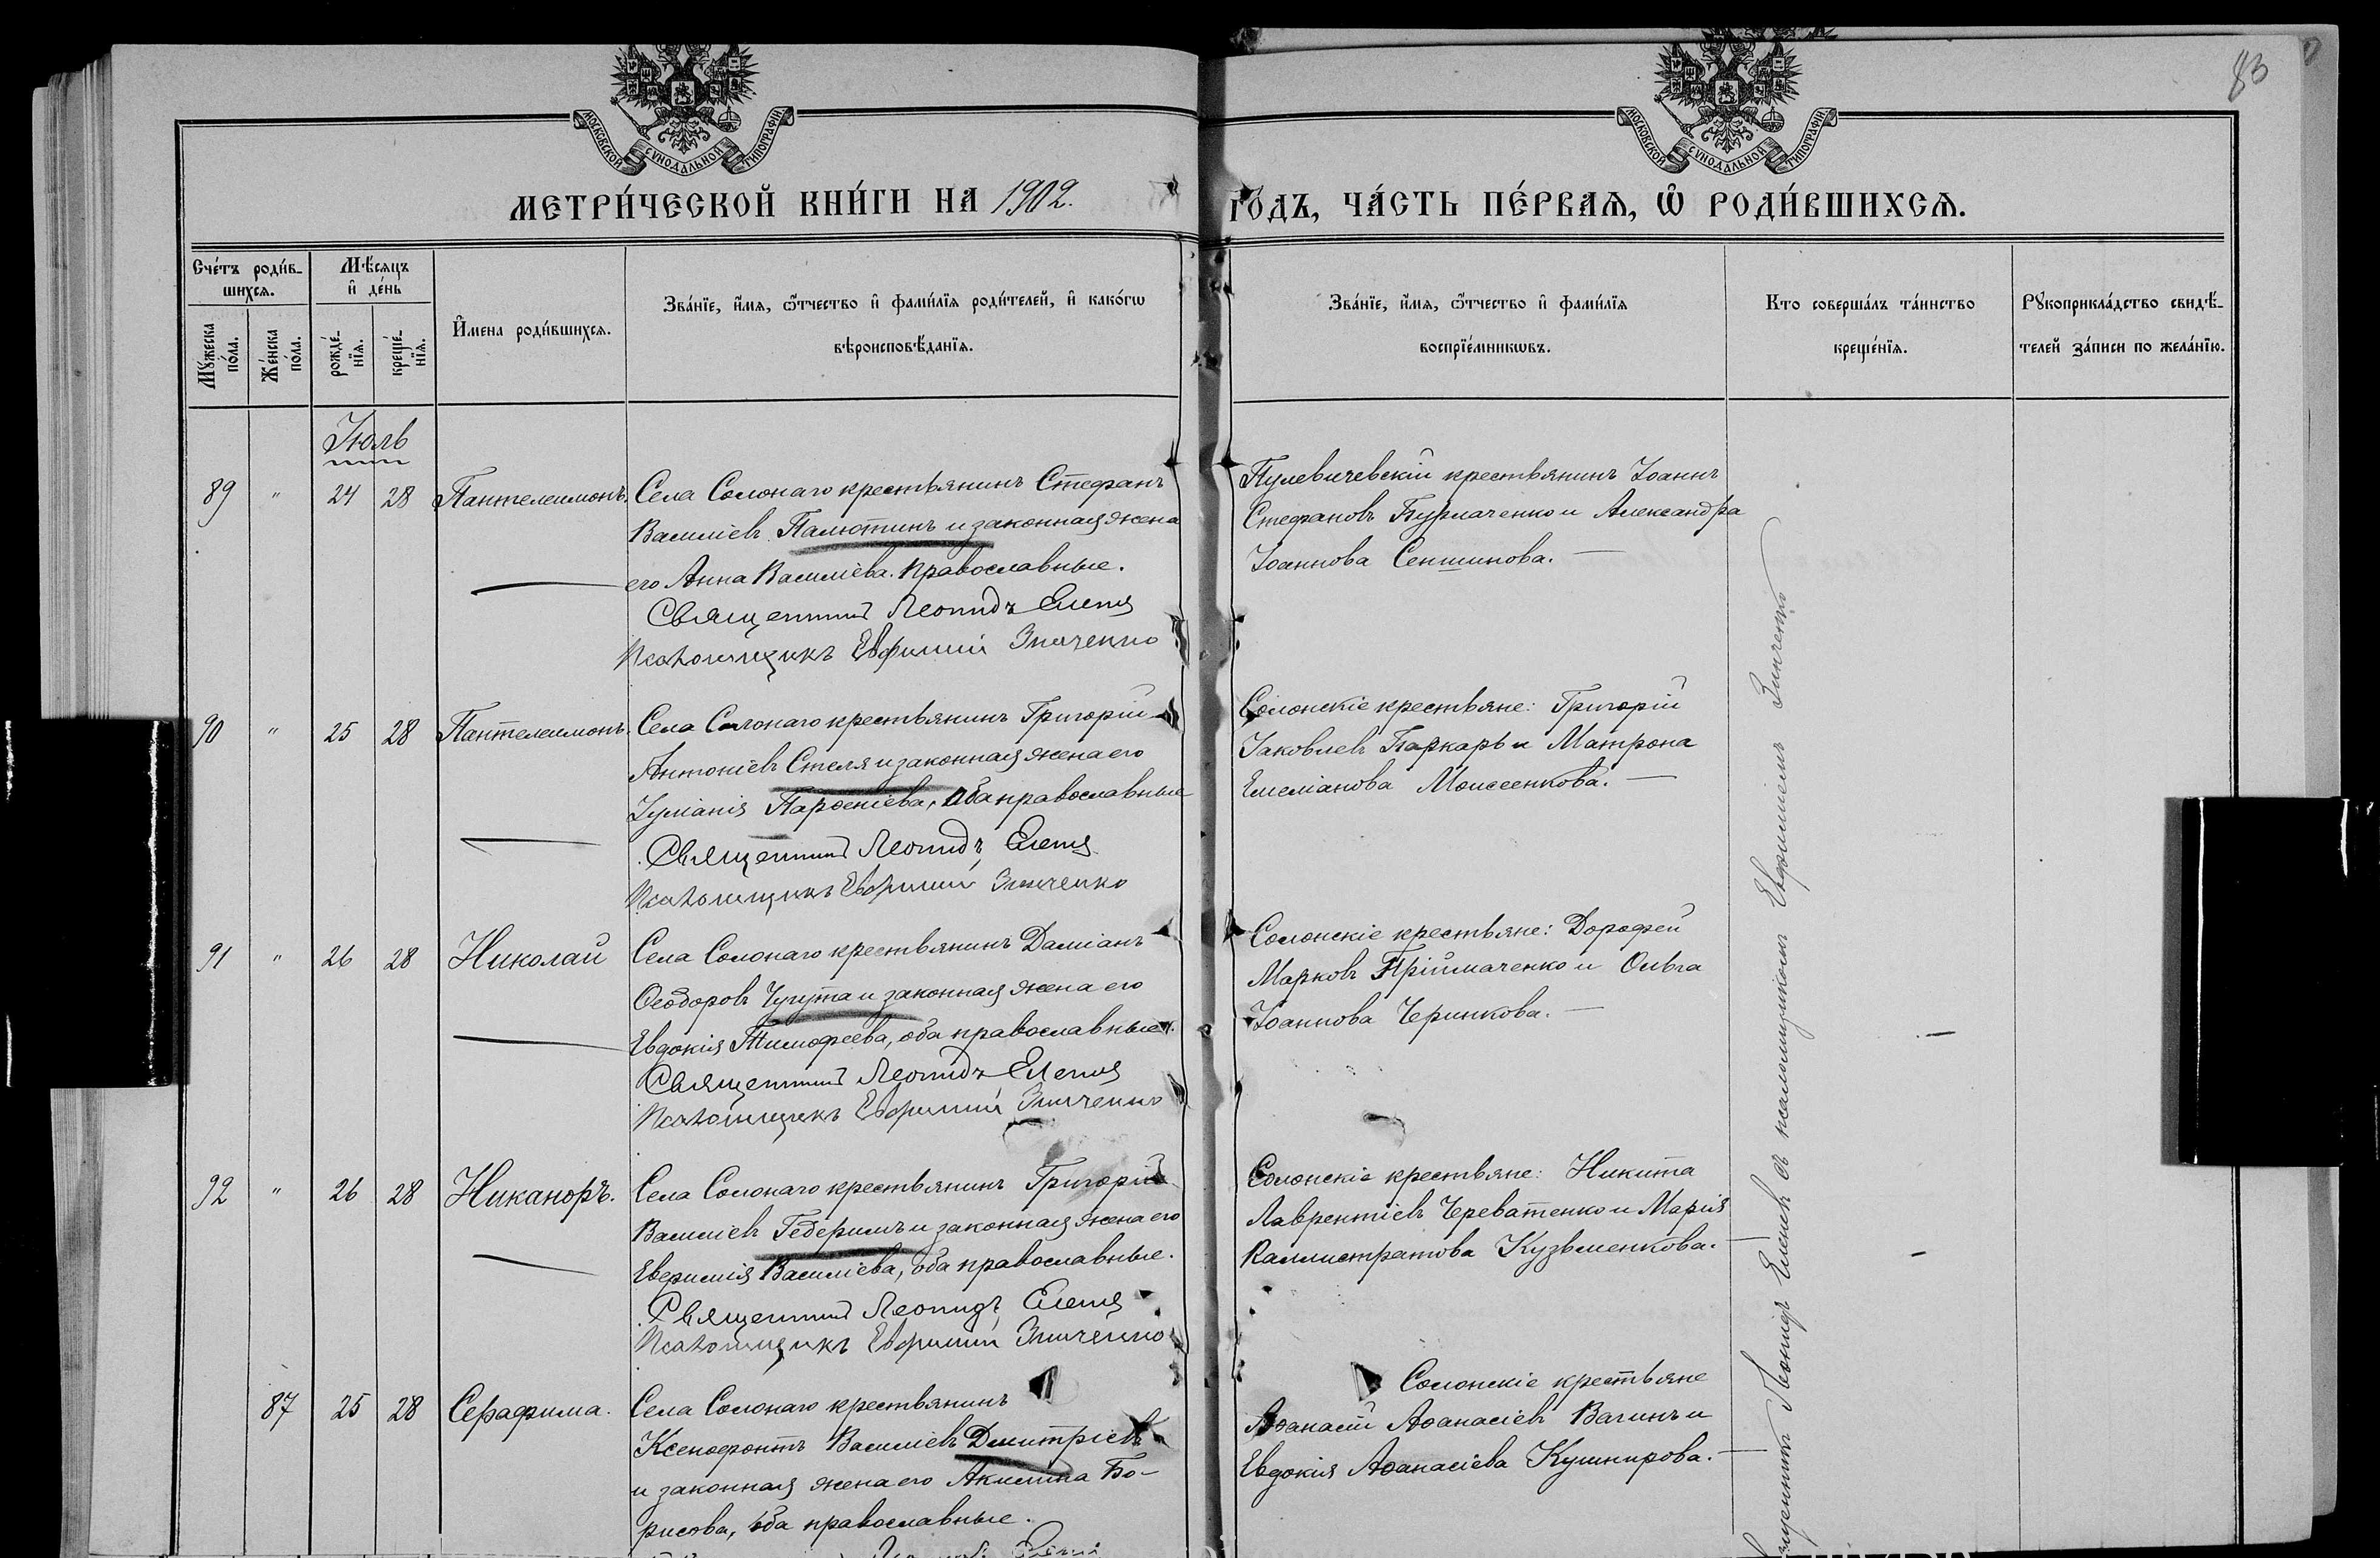 83
МОСКОВСКОЙ СѴНОДАЛЬНОЙ ТИПОГРАФІИ
МОСКОВСКОЙ СѴНОДАЛЬНОЙ ТИПОГРАФІИ
МЕТРИ́ЧЕСКОЙ КНИ́ГИ НА 1902.
ГОДЪ, ЧА́СТЬ ПЕ́РВАѦ, Ѡ҆ РОДИ́ВШИХСѦ.
Сче́тъ роди́в-
шихсѧ.
Мѣ́сѧцъ
и҆ де́нь
Мꙋ́жеска
по́ла.
Же́нска
по́ла.
рожде́-
нїѧ.
креще́-
нїѧ.
И҆мена роди́вшихсѧ.
Зва́нїе, и҆́мѧ, ѻ҆́тчество и҆ фами́лїѧ роди́телей, и҆ како́гѡ
вѣроисповѣ́данїѧ.
Зва́нїе, и҆́мѧ, ѻ҆́тчество и҆ фами́лїѧ
воспрїе́мникѡвъ.
Кто соверша́лъ та́инство
креще́нїѧ.
Рꙋкоприкла́дство свидѣ́-
телей за́писи по жела́нїю.
Іюль
89 " 24 28 Пантелеимонъ. Села Солонаго крестьянинъ Стефанъ
Василіевъ Палютинъ и законная жена
его Анна Василіева. Православные.
Священникъ Леонидъ
Псаломщикъ Евфимій Зинченко
крестьянинъ Іоаннъ
Стефановъ Бурлаченко и Александра
Іоаннова
90 " 25 28 Пантелеимонъ. Села Солонаго крестьянинъ Григорій
Антоніевъ Стеля и законная жена его
Іуліанія Парѳеніева, оба православные
Священникъ Леонидъ
Псаломщикъ Евфимій Зинченко
Солонскіе крестьяне: Григорій
Іаковлевъ и Матрона
Емеліанова Моисеенкова.
91 " 26 28 Николай Села Солонаго крестьянинъ Даміанъ
Ѳеодоровъ и законная жена его
Евдокія Тимофеева, оба православные.
Священникъ Леонидъ
Псаломщикъ Евфимій Зинченко
Солонскіе крестьяне: Дорофей
Марковъ Пріймаченко и Ольга
Іоаннова Черникова.
92 " 26 28 Никаноръ. Села Солонаго крестьянинъ Григорій
Василіевъ и законная жена его
Евфимія Василіева, оба православные.
Священникъ Леонидъ
Псаломщикъ Евфимій Зинченко
Солонскіе крестьяне: Никита
Лаврентіевъ Череватенко и Марія
Каллистратова Кузьменкова.
87 25 28 Серафима. Села Солонаго крестьянинъ
Ксенофонтъ Василіевъ Дмитріевъ
и законная жена его Акилина Бо-
рисова, оба православные.
Солонскіе крестьяне
Аѳанасій Аѳанасіевъ Вагинъ и
Евдокія Аѳанасіева Кушнирова.
Леонидъ съ псаломщикомъ Евфиміемъ Зинченко